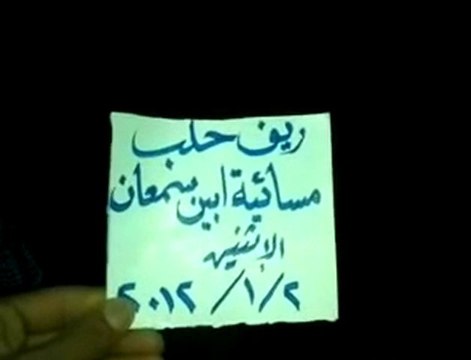 ريف حلب
مسائية ابين سمعان
الإثنين
٢/١/٢٠١٢